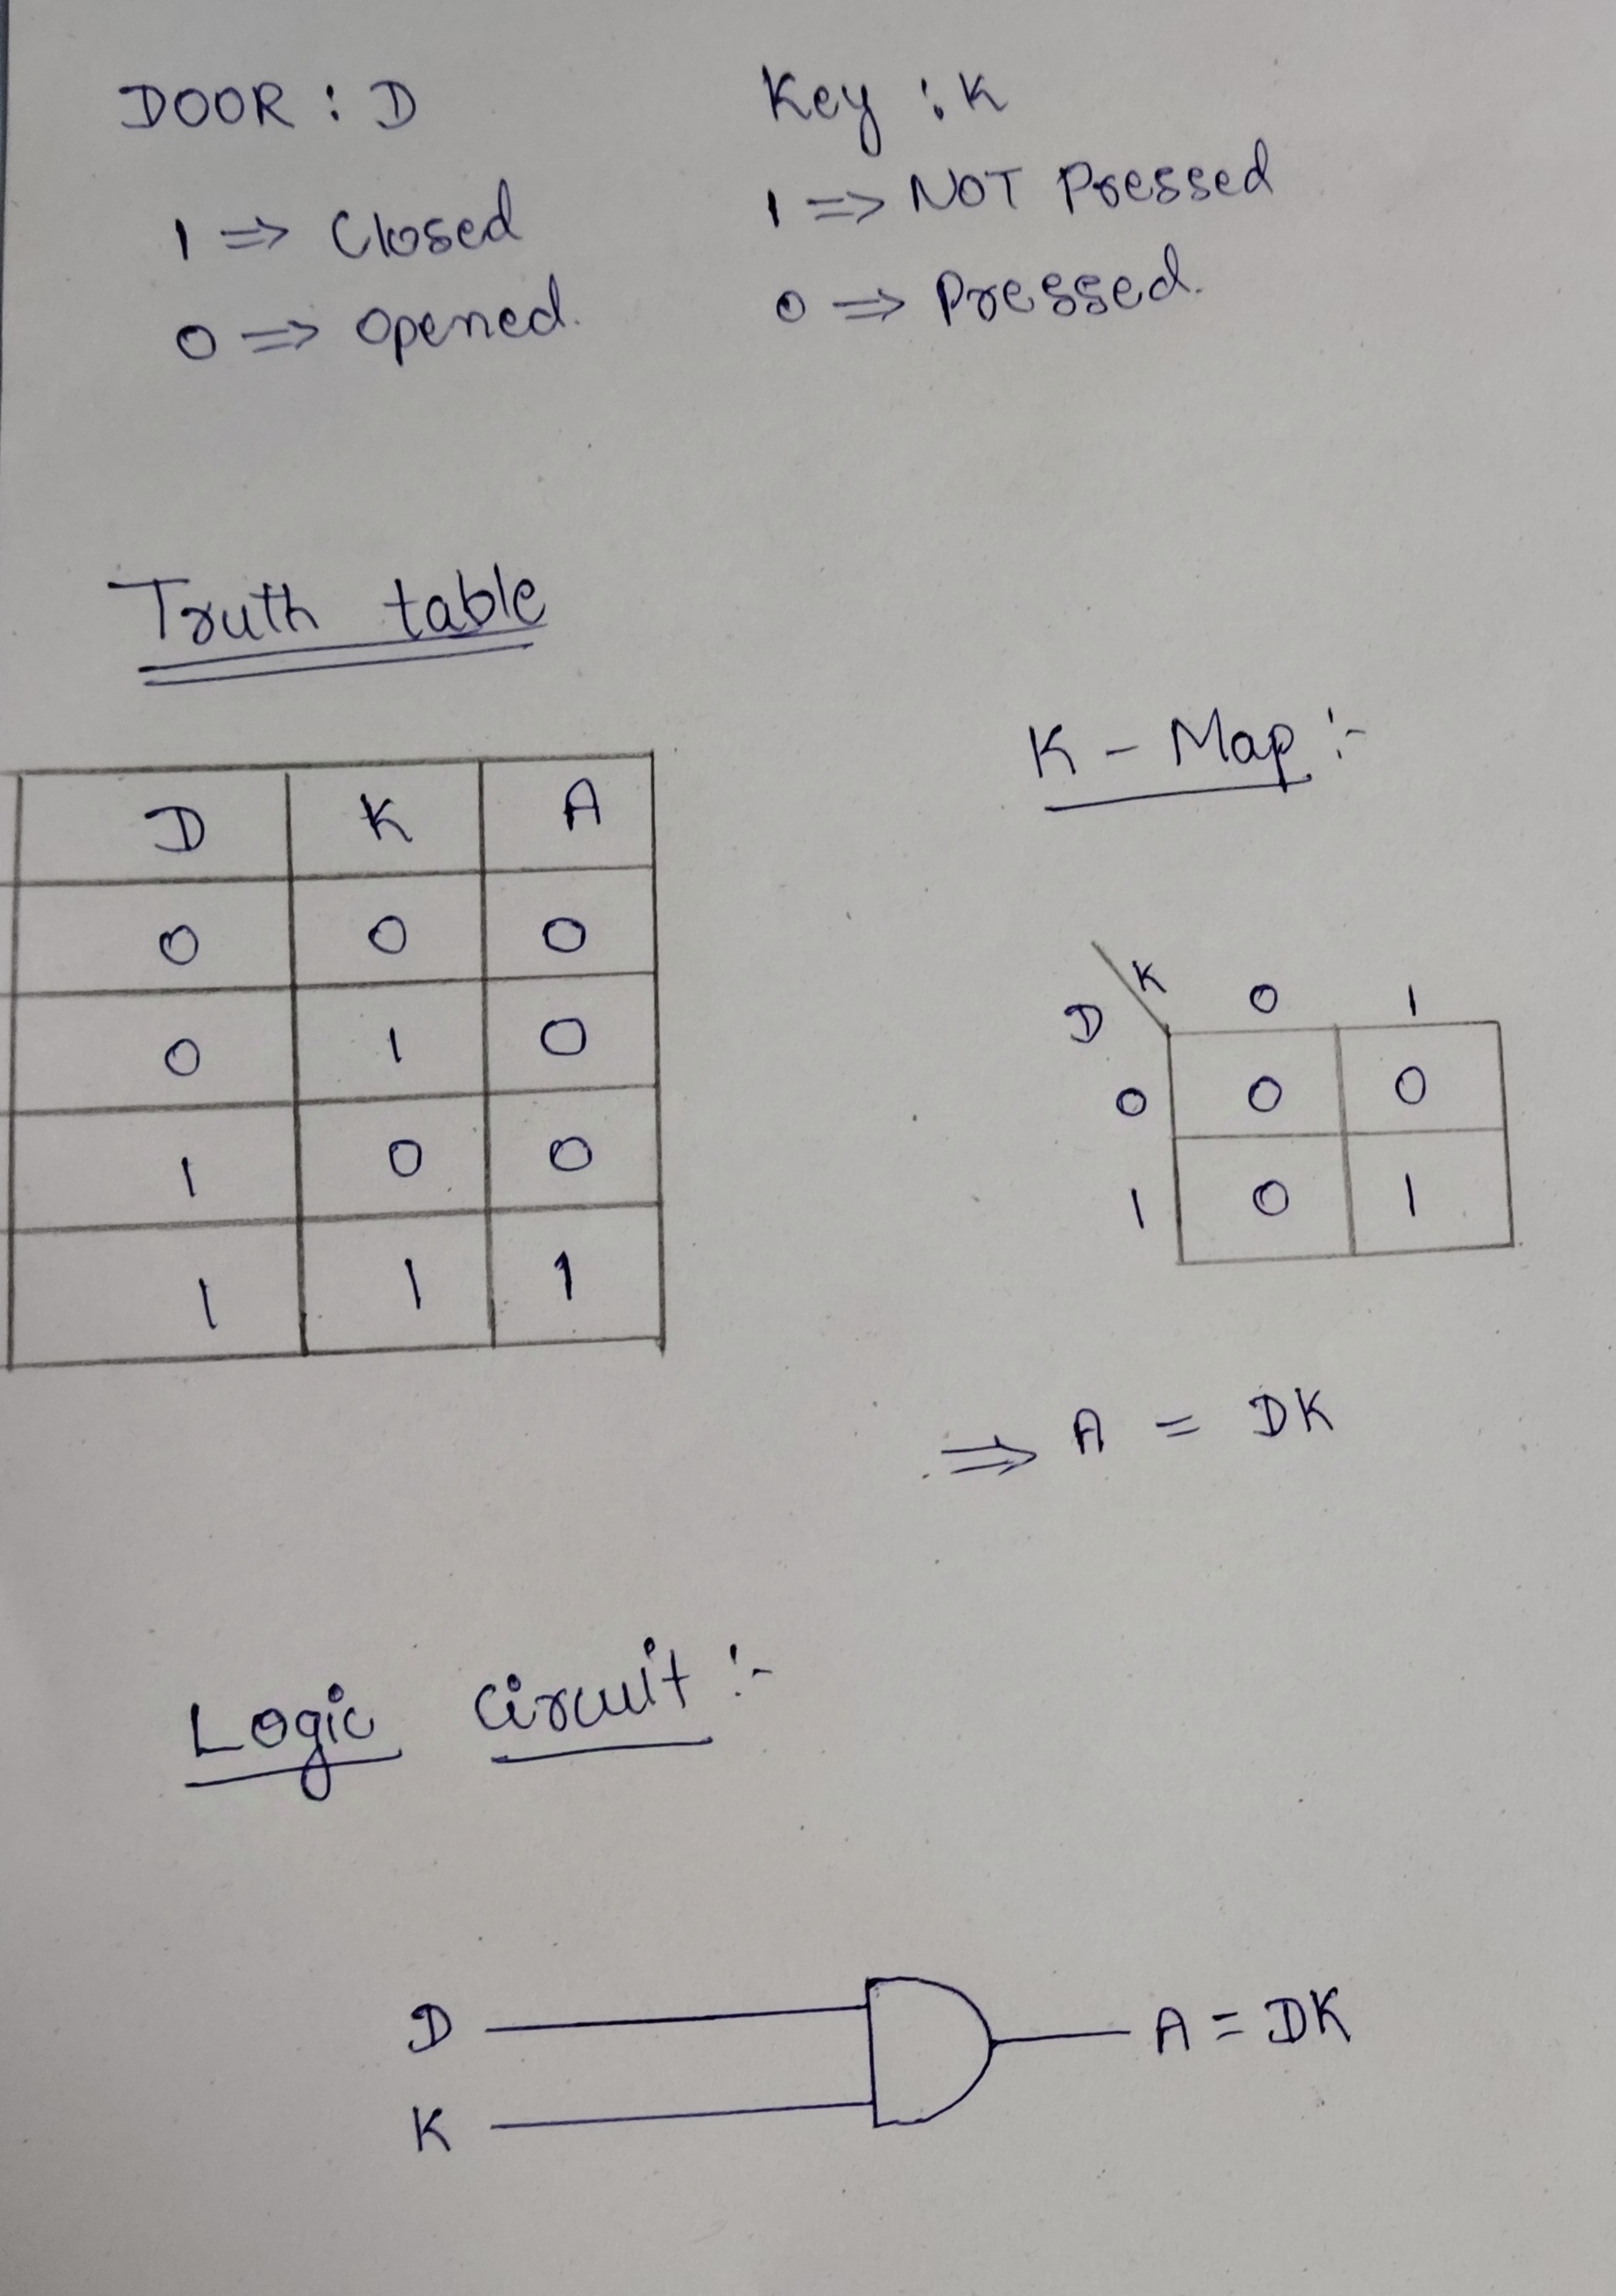 DOOR : D
Key : K
1 => Closed
1 => NOT Pressed
0 => Opened.
0 => Pressed.
Truth table
K - Map :-
D K A
0 0 0
0 1 0
1 0 0
1 1 1
K
D 0 1
0 0 0
1 0 1
=> A = DK
Logic Circuit :-
D
A = DK
K